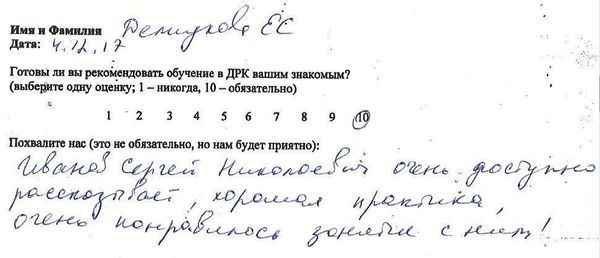 Имя и Фамилия Демидкова ЕС
Дата: 4.12.17
Готовы ли вы рекомендовать обучение в ДРК вашим знакомым?
(выберите одну оценку; 1 – никогда, 10 – обязательно)
1 2 3 4 5 6 7 8 9 10
Похвалите нас (это не обязательно, но нам будет приятно):
Иванов Сергей Николаевич очень доступно
рассказывает, хорошая практика,
очень понравилось занятия с ним!